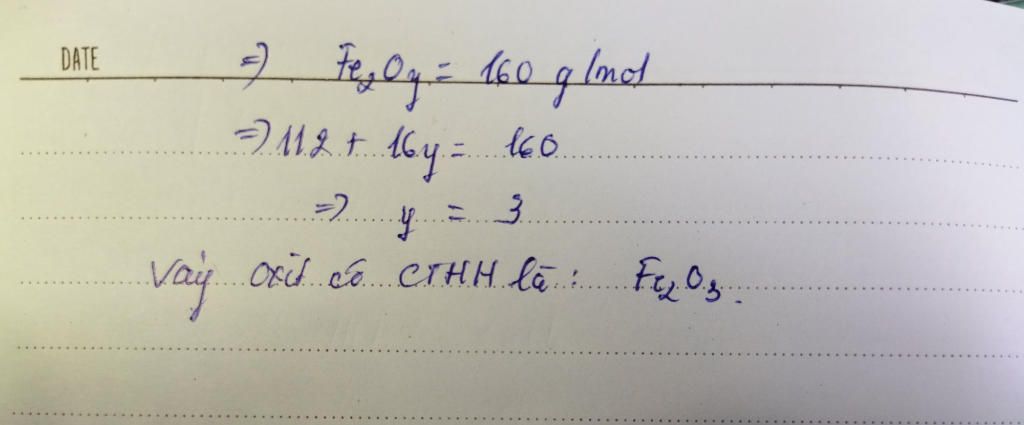 DATE
=> Fe₂Oy = 160 g/mol
=> 112 + 16y = 160
=> y = 3
Vậy oxit có CTHH là: Fe₂O₃.